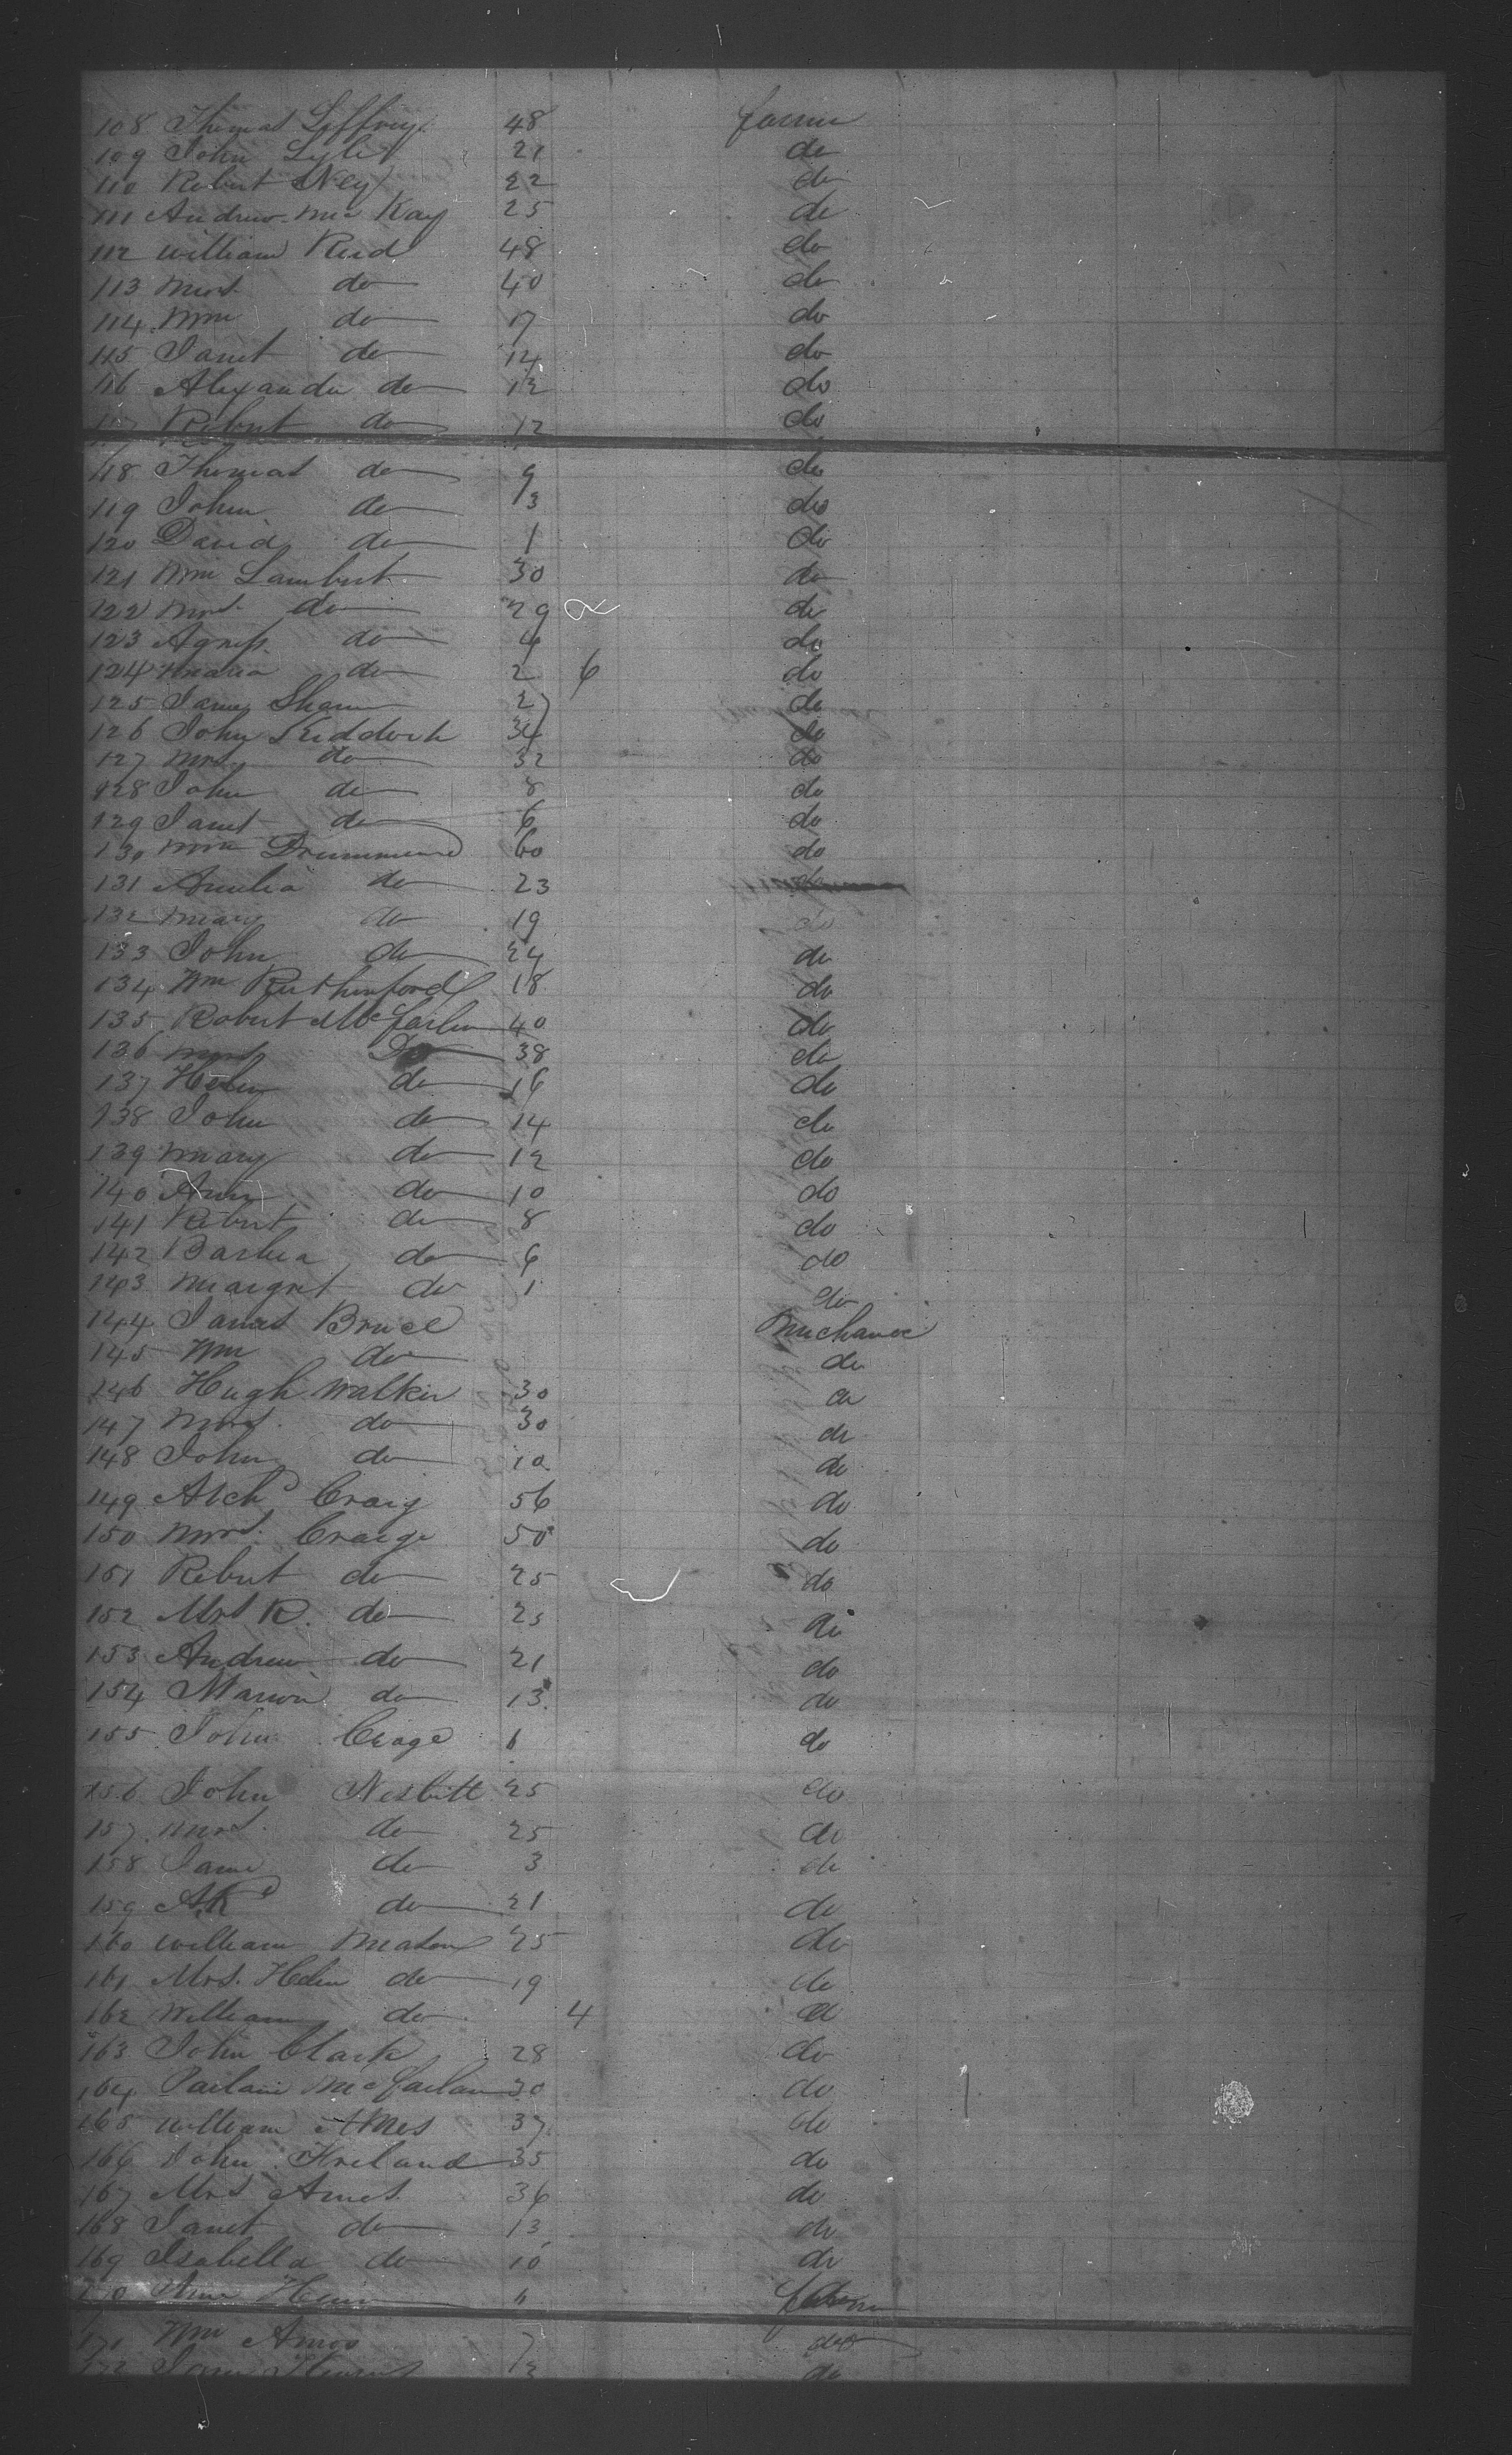 108 Thomas Jeffrey 48 farmer
109 John Lyle 21 do
110 Robert Ney 22 do
111 Andrew McKay 25 do
112 William Reid 48 do
113 Mrs. do 40 do
114 Wm do 17 do
115 Janet do 14 do
116 Alexander do 12 do
117 Robert do 12 do
118 Thomas do 9 do
119 John do 3 do
120 David do 1 do
121 Wm Lambert 30 do
122 Mrs. do 29 do
123 Agness do 4 do
124 Maria do 2 6 do
125 James Shaw 27 do
126 John Kiddoch 34 do
127 Mrs do 32 do
128 John do 8 do
129 Janet do 6 do
130 Wm Drummond 60 do
131 Amelia do 23
132 Mary do 19 do
133 John do 24 do
134 Wm Rutherford 18 do
135 Robert McFarlen 40 do
136 Mrs Do 38 do
137 Helen do 16 do
138 John do 14 do
139 Mary do 12 do
140 Ann do 10 do
141 Robert do 8 do
142 Barbra do 6 do
143 Margret do 1 do
144 James Bruce Mechanic
145 Wm do do
146 Hugh Walker 30 do
147 Mrs. do 30 do
148 John do 10 do
149 Alchd Craig 56 do
150 Mrs. Craige 50 do
151 Robert do 25 do
152 Mrs R. do 25 do
153 Andrew do 21 do
154 Marion do 13 do
155 John Crage 6 do
156 John Nesbitt 25 do
157 Mrs. do 25 do
158 Jane do 3 do
159 do 21 do
160 William Meason 25 do
161 Mrs. Helen do 19 do
162 William do 4 do
163 John Clark 28 do
164 Parlain McFarlan 30 do
165 William Ames 37 do
166 John Kreland 35 do
167 Mrs Ames 36 do
168 Janet do 13 do
169 Isabella do 10 do
170 farmer
171 Wm Amos 7 do
172 do